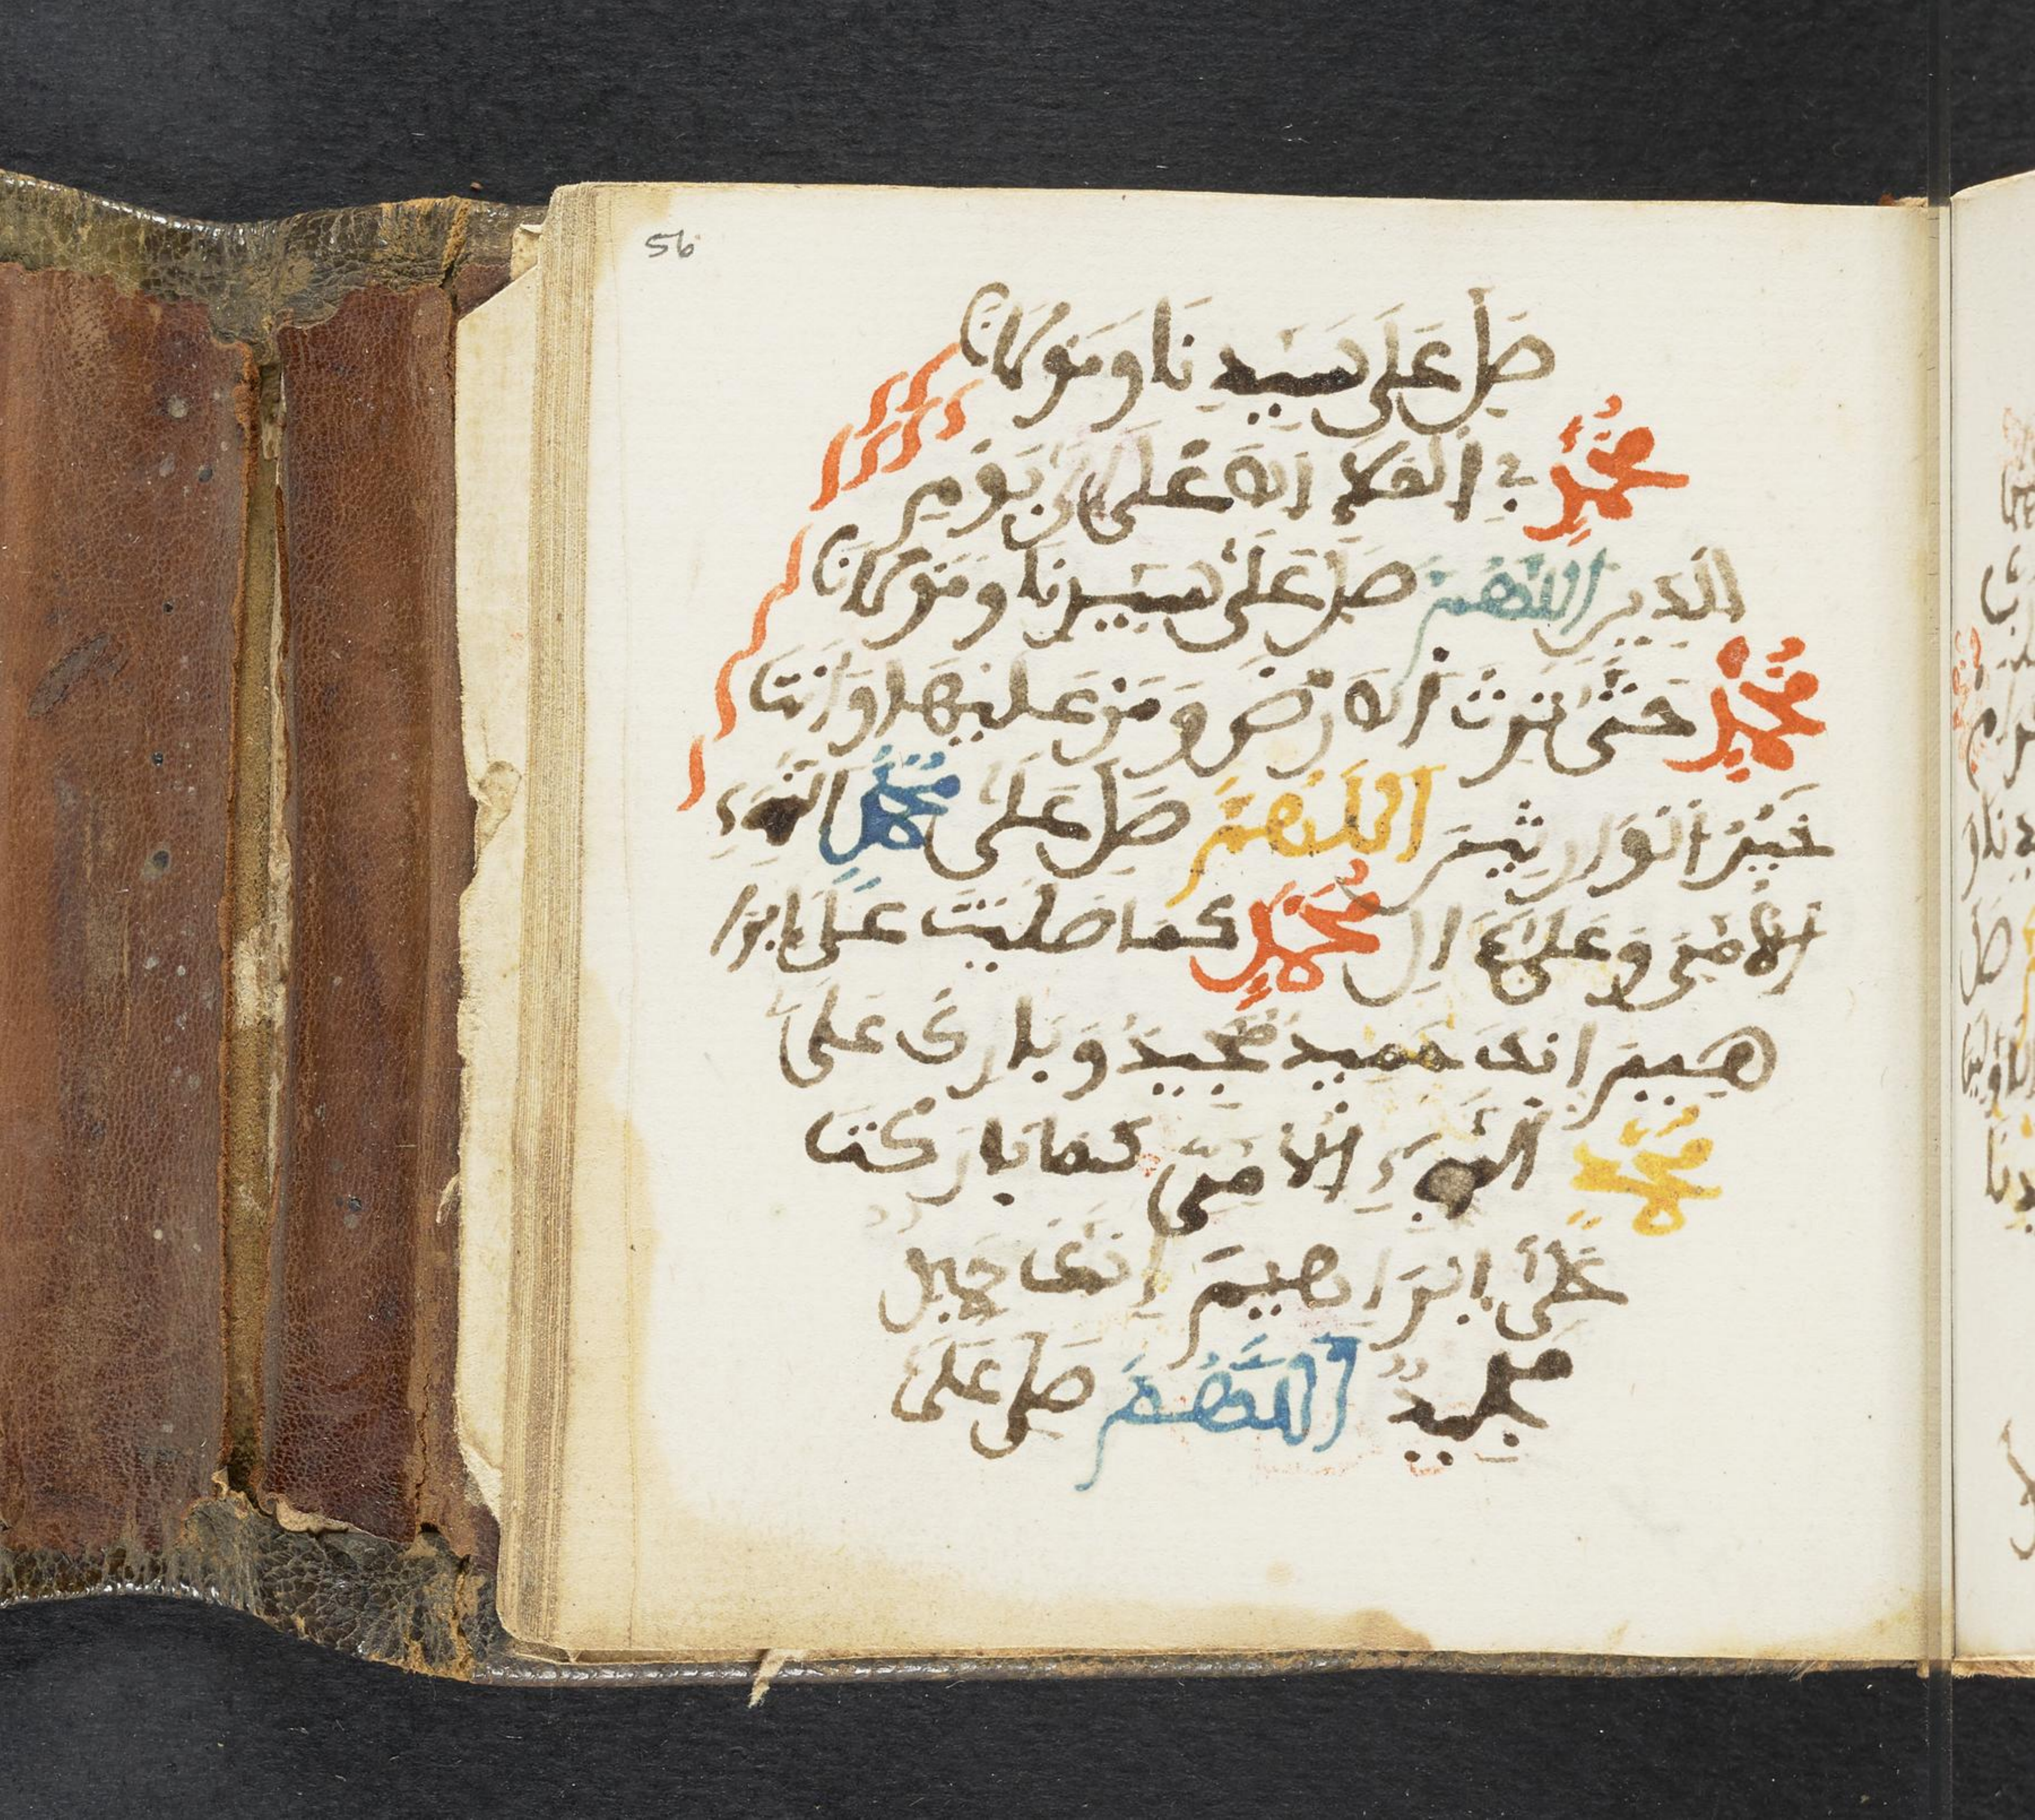 56
صَلِّ عَلَى سَيِّدِنَا وَمَوْلَانَا
مُحَمَّدٍ فِي الْمَلَإِ الْأَعْلَى إِلَى يَوْمِ
الدِّينِ اللَّهُمَّ صَلِّ عَلَى سَيِّدِنَا وَمَوْلَانَا
مُحَمَّدٍ حَتَّى تَرِثَ الْأَرْضَ وَمَنْ عَلَيْهَا وَأَنْتَ
خَيْرُ الْوَارِثِينَ اللَّهُمَّ صَلِّ عَلَى مُحَمَّدٍ النَّبِيءِ
الْأُمِّيِّ وَعَلَى ءَالِ مُحَمَّدٍ كَمَا صَلَّيْتَ عَلَى إِبْرَا
هِيمَ إِنَّكَ حَمِيدٌ مَجِيدٌ وَبَارِكْ عَلَى
مُحَمَّدٍ النَّبِيءِ الْأُمِّيِّ كَمَا بَارَكْتَ
عَلَى إِبْرَاهِيمَ إِنَّكَ حَمِيدٌ
مَجِيدٌ اللَّهُمَّ صَلِّ عَلَى